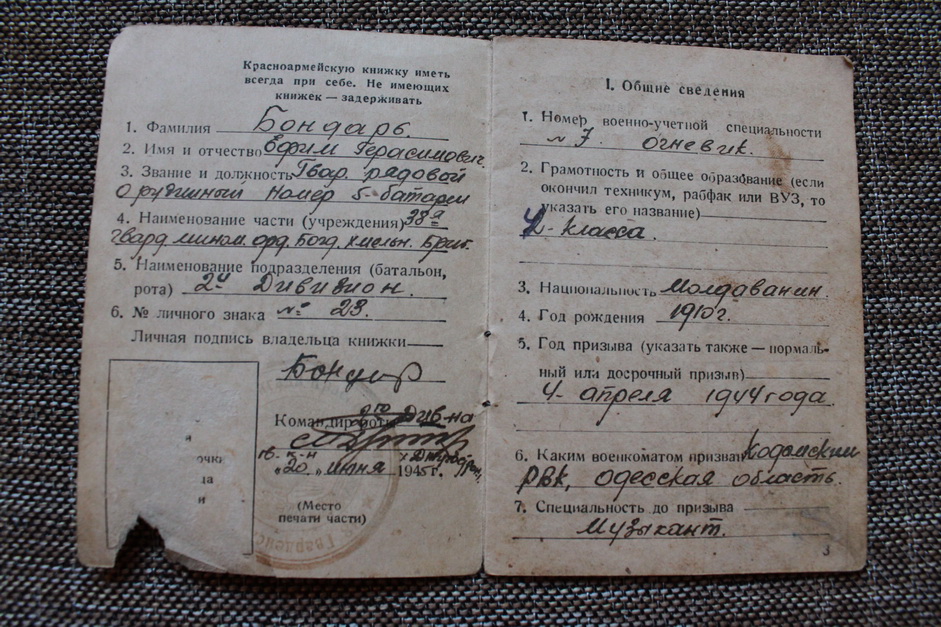 Красноармейскую книжку иметь
всегда при себе. Не имеющих
книжек — задерживать
1. Фамилия Бондарь.
2. Имя и отчество Ефим Герасимович.
3. Звание и должность Гвар. рядовой
Орудийный номер 5-батареи
4. Наименование части (учреждения) 38я
гвард. мином. орд. Богд. Хмельн. Бриг.
5. Наименование подразделения (батальон,
рота) 2й Дивизион.
6. № личного знака № 23.
Личная подпись владельца книжки
Бондарь
Командир роты Див-на
гв. к-н
„20„ июня 1945 г.
(Место
печати части)
очки
и
Гвардейс
I. Общие сведения
1. Номер военно-учетной специальности
№ 7. огневик.
2. Грамотность и общее образование (если
окончил техникум, рабфак или ВУЗ, то
указать его название)
4-класса.
3. Национальность Молдаванин.
4. Год рождения 1910 г.
5. Год призыва (указать также — нормаль-
ный или досрочный призыв)
4- апреля 1944 года.
6. Каким военкоматом призван Кодымский
РВК, Одесская область.
7. Специальность до призыва
Музыкант.
3